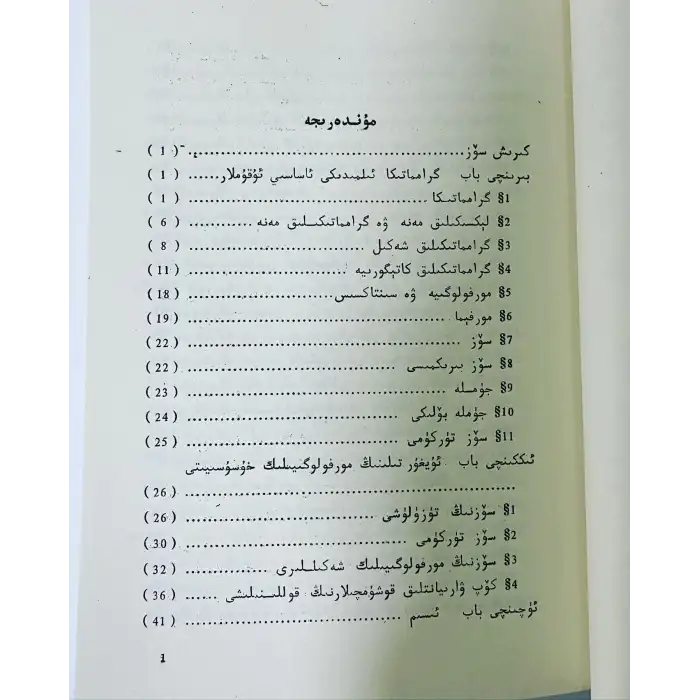 مۇندەرىجە
كىرىش سۆز ................................. ( 1 )
بىرىنچى باب گرامماتىكا ئىلمىدىكى ئاساسىي ئۇقۇملار ...... ( 1 )
§1 گرامماتىكا .............................. ( 1 )
§2 لېكسىكىلىق مەنە ۋە گرامماتىكىلىق مەنە ............ ( 6 )
§3 گرامماتىكىلىق شەكىل ...................... ( 8 )
§4 گرامماتىكىلىق كاتېگورىيە .................... ( 11 )
§5 مورفولوگىيە ۋە سىنتاكسىس ..................... ( 18 )
§6 مورفېما ................................. ( 19 )
§7 سۆز ................................... ( 22 )
§8 سۆز بىرىكمىسى ........................... ( 22 )
§9 جۈملە ................................. ( 23 )
§10 جۈملە بۆلىكى ........................... ( 24 )
§11 سۆز تۈركۈمى ........................... ( 25 )
ئىككىنچى باب ئۇيغۇر تىلىنىڭ مورفولوگىيىلىك خۇسۇسىيىتى
............................................ ( 26 )
§1 سۆزنىڭ تۈزۈلۈشى ........................ ( 26 )
§2 سۆز تۈركۈمى ............................ ( 30 )
§3 سۆزنىڭ مورفولوگىيىلىك شەكىللىرى ............ ( 32 )
§4 كۆپ ۋارىيانتلىق قوشۇمچىلارنىڭ قوللىنىلىشى ...... ( 36 )
ئۈچىنچى باب ئىسىم ............................ ( 41 )
1